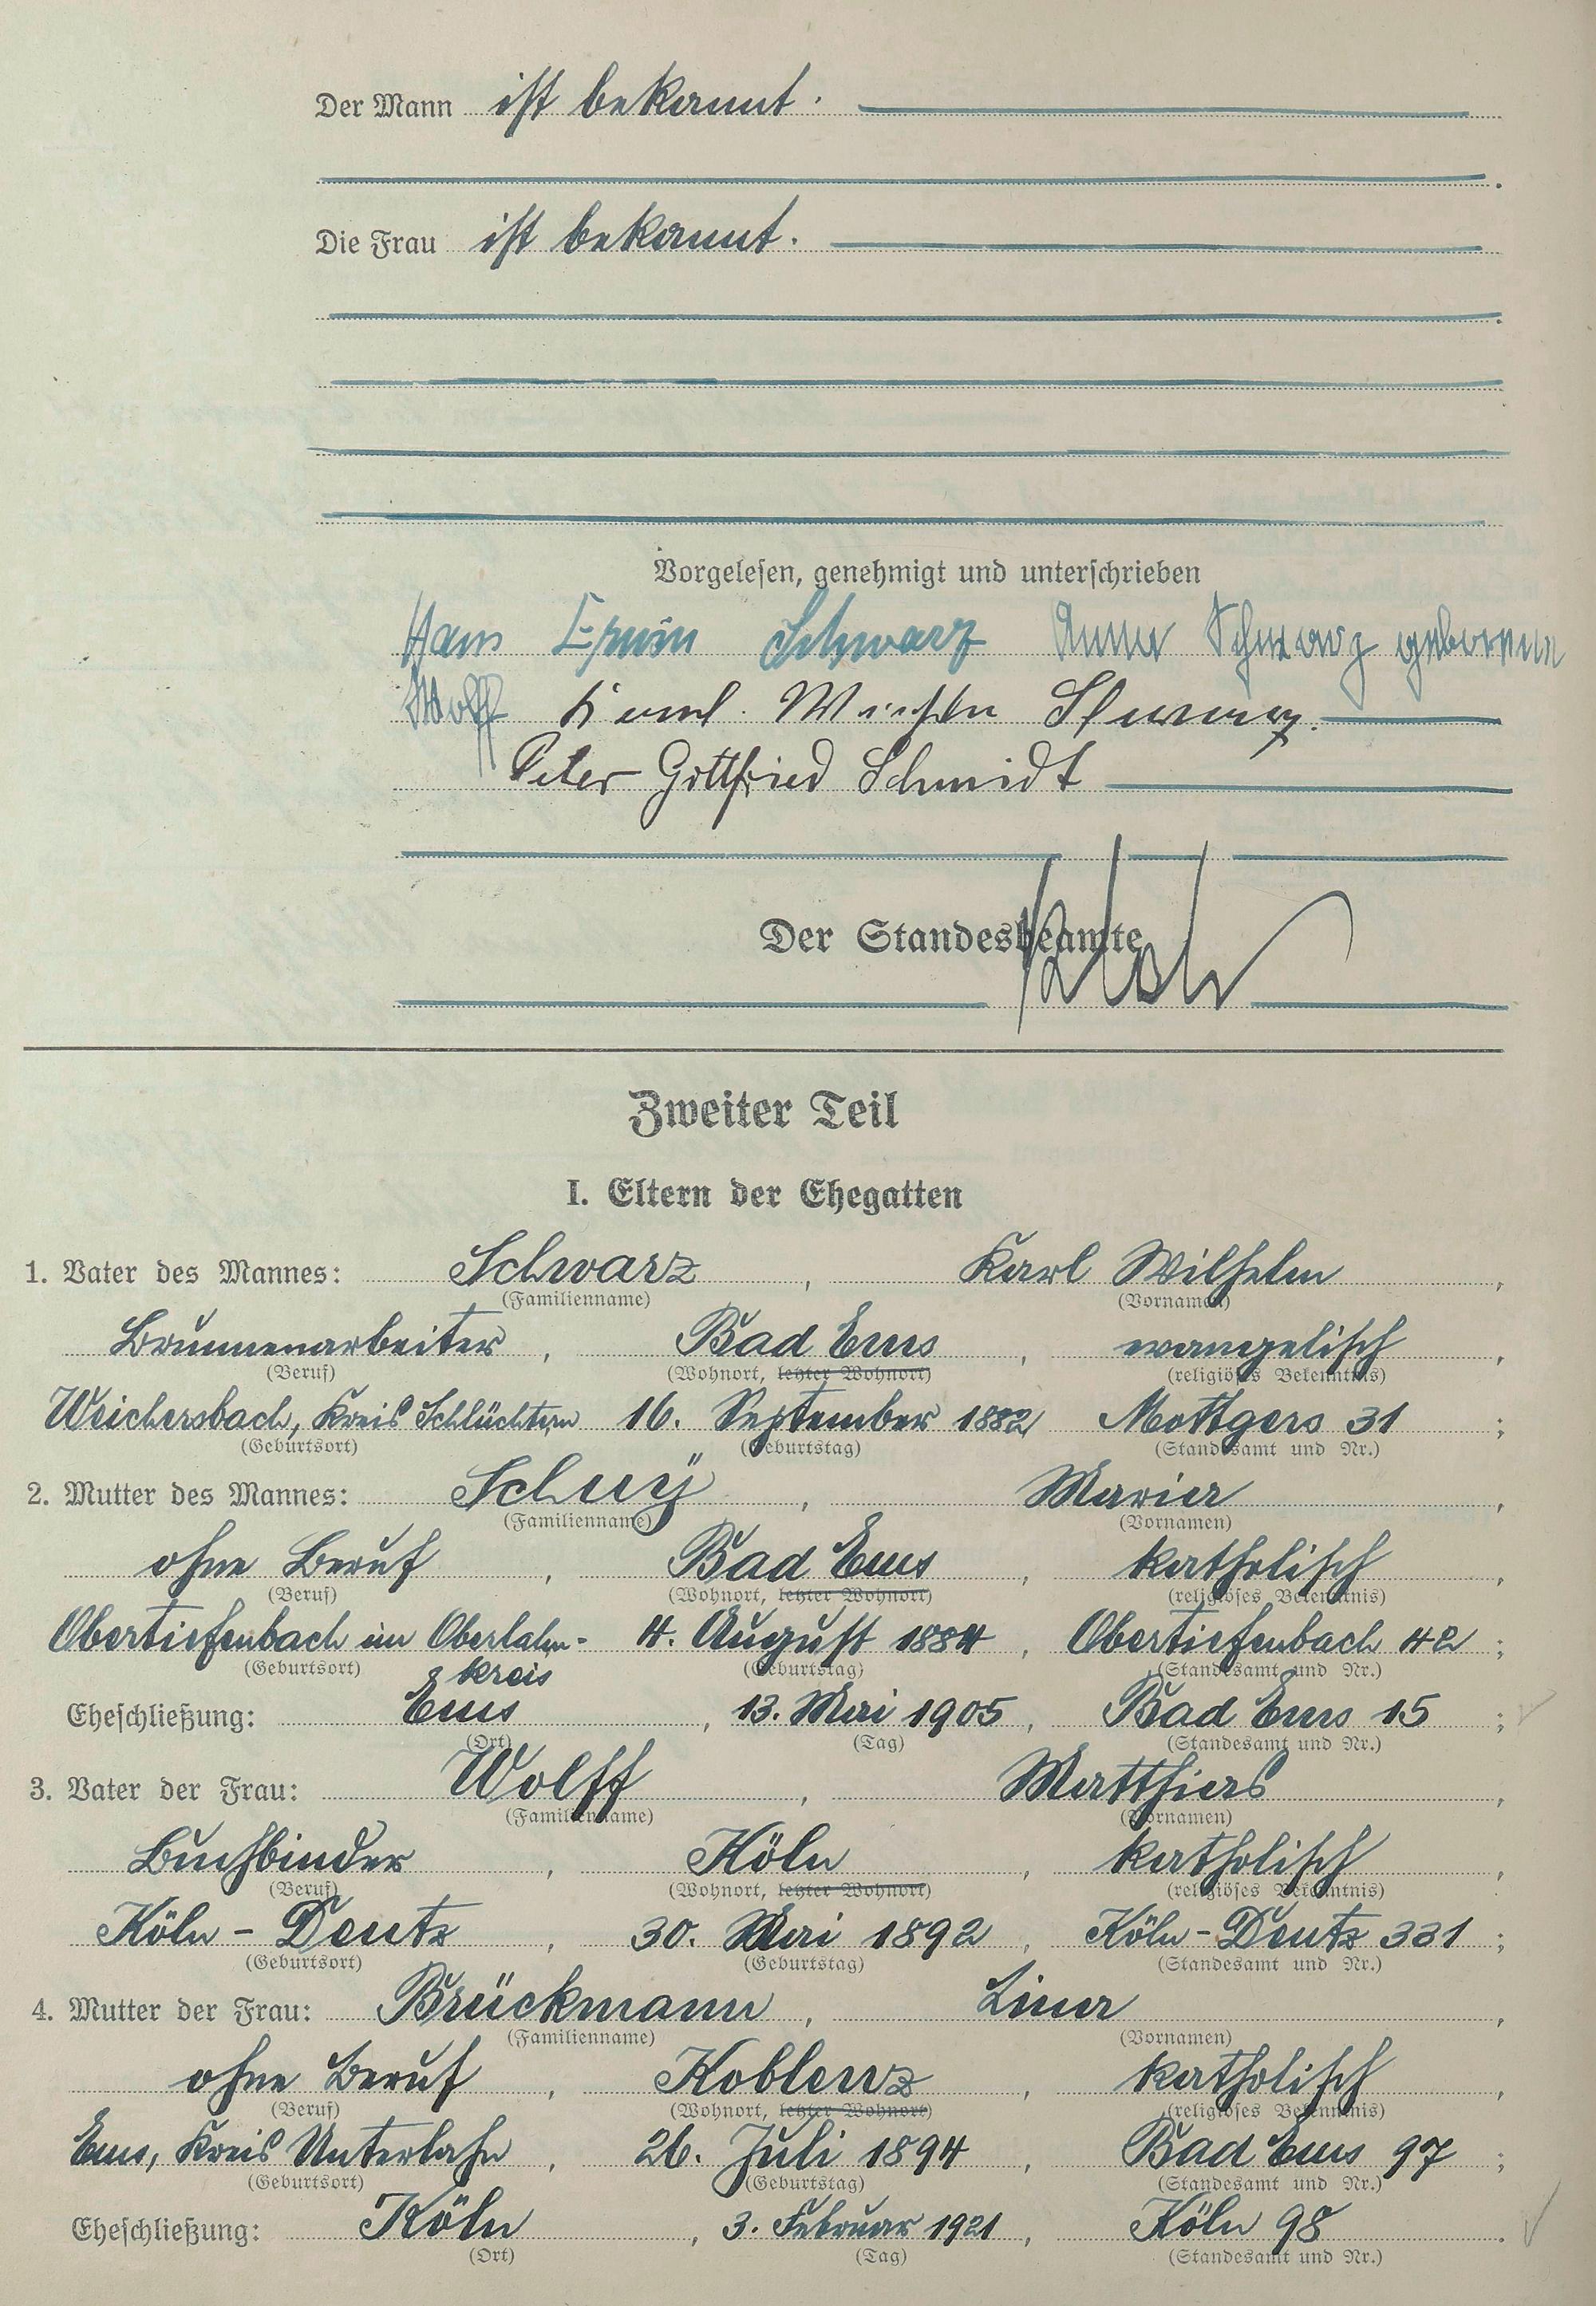 Der Mann ist bekannt.
Die Frau ist bekannt.
Vorgelesen, genehmigt und unterschrieben
Hans Erwin Schwarz Anna Schwarz geborene
Wolff Schwarz.
Peter Gottfried Schmidt
Der Standesbeamte
Zweiter Teil
I. Eltern der Ehegatten
1. Vater des Mannes: Schwarz, Karl Wilhelm,
(Familienname) (Vornamen)
Brunnenarbeiter, Bad Ems, evangelisch,
(Beruf) (Wohnort, letzter Wohnort) (religiöses Bekenntnis)
Weichersbach, Kreis Schlüchtern 16. September 1882, Mottgers 31;
(Geburtsort) (Geburtstag) (Standesamt und Nr.)
2. Mutter des Mannes: Schuÿ, Maria,
(Familienname) (Vornamen)
ohne Beruf, Bad Ems, katholisch,
(Beruf) (Wohnort, letzter Wohnort) (religiöses Bekenntnis)
Obertiefenbach im Oberlahn- 4. August 1884, Obertiefenbach 42;
(Geburtsort) kreis (Geburtstag) (Standesamt und Nr.)
Eheschließung: Ems, 13. Mai 1905, Bad Ems 15;
(Ort) (Tag) (Standesamt und Nr.)
3. Vater der Frau: Wolff, Matthias,
(Familienname) (Vornamen)
Buchbinder, Köln, katholisch,
(Beruf) (Wohnort, letzter Wohnort) (religiöses Bekenntnis)
Köln-Deutz, 30. Mai 1892, Köln-Deutz 331;
(Geburtsort) (Geburtstag) (Standesamt und Nr.)
4. Mutter der Frau: Brückmann, Lina,
(Familienname) (Vornamen)
ohne Beruf, Koblenz, katholisch,
(Beruf) (Wohnort, letzter Wohnort) (religiöses Bekenntnis)
Ems, Kreis Unterlahn, 26. Juli 1894, Bad Ems 97;
(Geburtsort) (Geburtstag) (Standesamt und Nr.)
Eheschließung: Köln, 3. Februar 1921, Köln 98.
(Ort) (Tag) (Standesamt und Nr.)